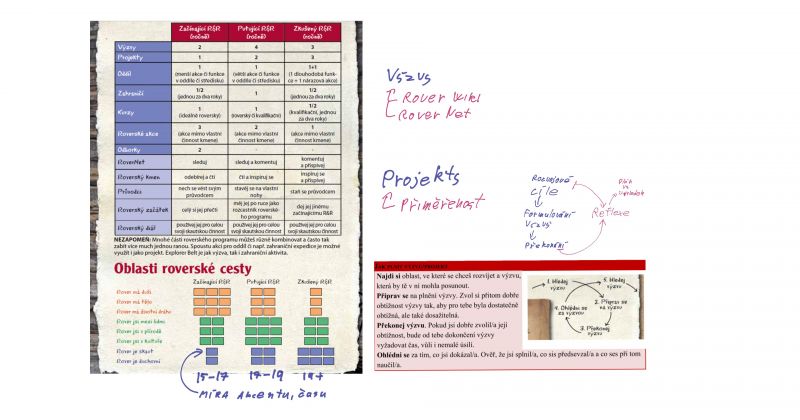 Začínající R&R
(ročně)
Putující R&R
(ročně)
Zkušený R&R
(ročně)
Výzvy 2 4 3
Projekty 1 2 3
Oddíl
1
(menší akce či funkce
v oddíle či středisku)
1
(větší akce či funkce
v oddíle či středisku)
1+1
(1 dlouhodobá funk-
ce + 1 nárazová akce)
Zahraničí
1/2
(jednou za dva roky)
1
1/2
(jednou za dva roky)
Kurzy
1
(ideálně roverský)
1
(roverský či kvalifikační)
1/2
(kvalifikační, jednou
za dva roky)
Roverské akce
3
(akce mimo vlastní
činnost kmene)
2
(akce mimo vlastní
činnost kmene)
1
(akce mimo vlastní
činnost kmene)
Odborky 2 - -
RoverNet
sleduj
sleduj a komentuj
komentuj
a přispívej
Roverský kmen
odebírej a čti
čti a inspiruj se
inspiruj se
a přispívej
Průvodce
nech se vést svým
průvodcem
stavěj se na vlastní
nohy
staň se průvodcem
Roverský začátek
celý si jej přečti
měj jej po ruce jako
rozcestník roverské-
ho programu
dej jej jinému
začínajícímu R&R
Roverský diář
používej jej pro celou
svoji skautskou činnost
používej jej pro celou
svoji skautskou činnost
používej jej pro celou
svoji skautskou činnost
NEZAPOMEŇ: Mnohé části roverského programu můžeš různě kombinovat a často tak
zabít více much jednou ranou. Spoustu akcí pro oddíl či např. zahraniční expedice je možné
využít i jako projekt. Explorer Belt je jak výzva, tak i zahraniční aktivita.
Oblasti roverské cesty
Začínající R&R Putující R&R Zkušený R&R
Rover má duši
Rover má tělo
Rover má životní dráhu
Rover jsi mezi lidmi
Rover jsi v přírodě
Rover jsi v kultuře
Rover je skaut
Rover je duchovní
15-17 17-19 19+
MÍRA akcentu, času
Výzvy
Rover wiki
Rover Net
Projekty
Přiměřenost
Rozvojové
cíle
Formulování
výzvy
Překonání
Reflexe
Najdi si oblast, ve které se chceš rozvíjet a výzvu,
která by tě v ní mohla posunout.
Připrav se na plnění výzvy. Zvol si přitom dobře
obtížnost výzvy tak, aby pro tebe byla dostatečně
obtížná, ale také dosažitelná.
Překonej výzvu. Pokud jsi dobře zvolil/a její
obtížnost, bude od tebe dokončení výzvy
vyžadovat čas, vůli i nemalé úsilí.
Ohlédni se za tím, co jsi dokázal/a. Ověř, že jsi splnil/a, co sis předsevzal/a a co ses při tom
naučil/a.
1. Hledej
výzvu
5. Hledej
výzvu
2. Připrav se
na výzvu
4. Ohlédni se
za výzvou
3. Překonej
výzvu